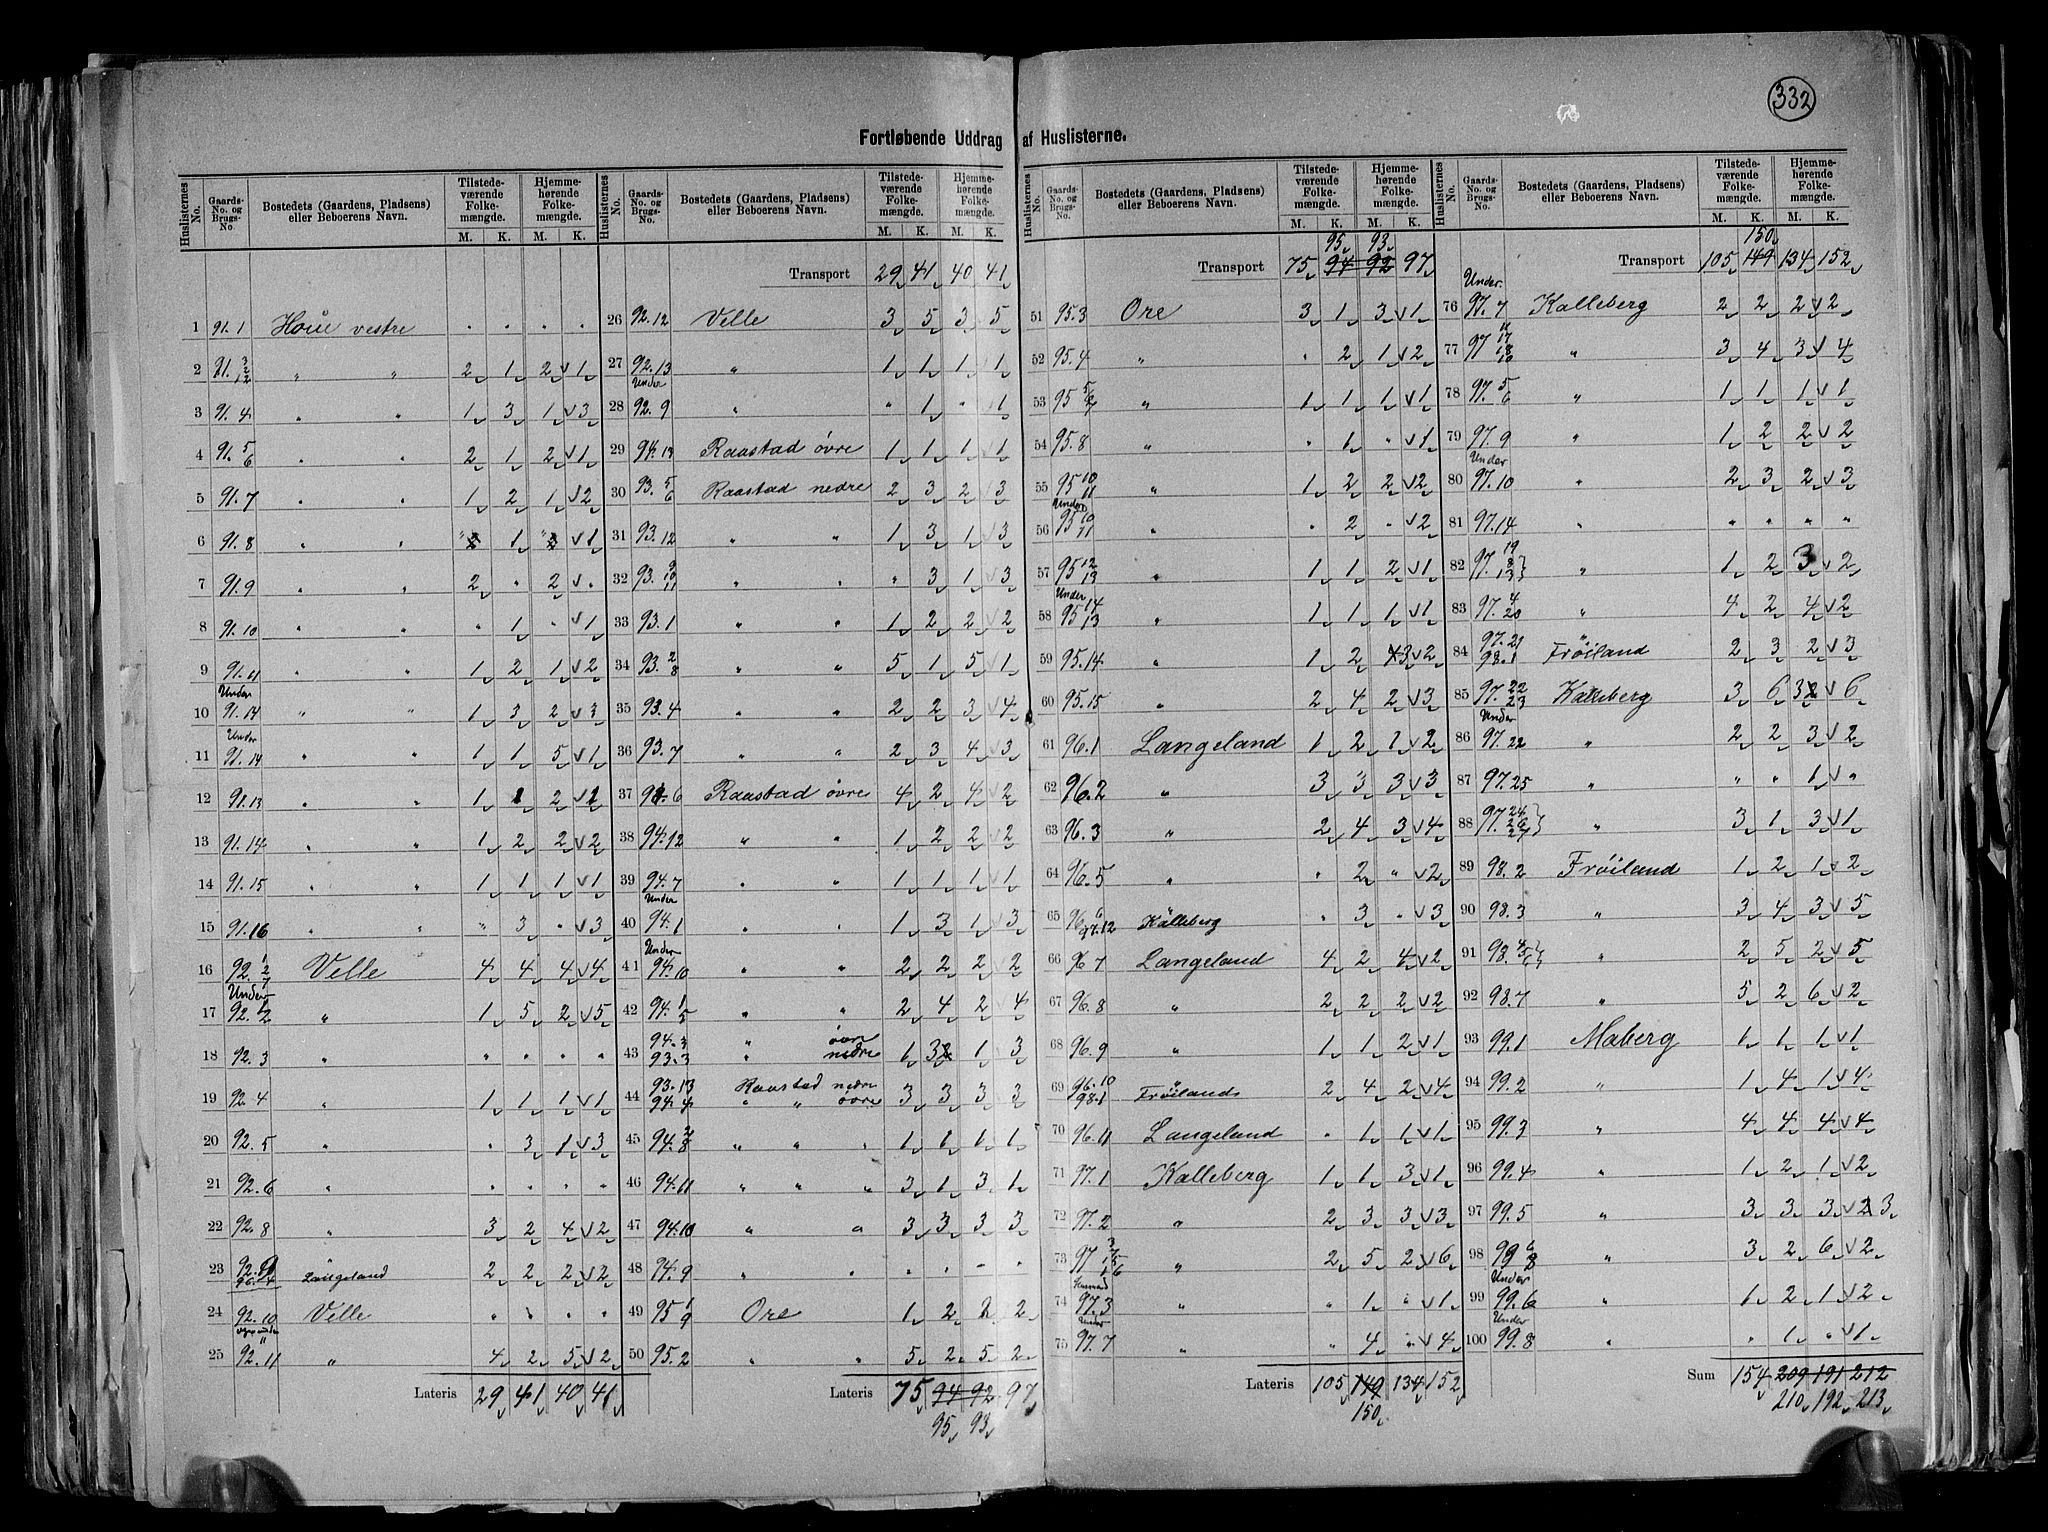 332
Fortløbende Uddrag af Huslisterne.
Huslisternes No. Gaards-No. og Brugs-No. Bostedets (Gaardens, Pladsens) eller Beboerens Navn. Tilstedeværende Folkemængde. M. K. Hjemmehørende Folkemængde. M. K.
1 91.1 Houe vestre " " " "
2 91. 3 2 12 " " 2 1 2 1
3 91.4 " " 1 3 1 3
4 91. 5 6 " " 2 1 2 1
5 91.7 " " 1 2 1 2
6 91.8 " " " 1 " 1
7 91.9 " " 2 " 2 "
8 91.10 " " " 1 " 1
9 91.11 " " 1 2 1 2
10 Under 91.14 " " 1 3 2 3
11 Under 91.14 " " 1 1 5 1
12 91.13 " " 1 1 2 1
13 91.14 " " 1 2 2 2
14 91.15 " " 1 1 1 1
15 91.16 " " " 3 " 3
16 92. 1 2 7 Velle 4 4 4 4
17 Under 92. 1 2 " 1 5 2 5
18 92.3 " " " " "
19 92.4 " 1 1 1 1
20 92.5 " " 3 1 3
21 92.6 " " " " "
22 92.8 " 3 2 4 2
23 92.9 96.4 Langeland 2 2 2 2
24 92.10 Velle " " " "
25 92.11 " 4 2 5 2
Lateris 29 41 40 41
Huslisternes No. Gaards-No. og Brugs-No. Bostedets (Gaardens, Pladsens) eller Beboerens Navn. Tilstedeværende Folkemængde. M. K. Hjemmehørende Folkemængde. M. K.
Transport 29 41 40 41
26 92.12 Velle 3 5 3 5
27 92.13 " 1 1 1 1
28 Under 92.9 " " 1 " 1
29 94.13 Raastad øvre 1 1 1 1
30 93. 5 6 Raastad nedre 2 3 2 3
31 93.12 " " 1 3 1 3
32 93. 9 10 11 " " " 3 1 3
33 93.1 " " 1 2 2 2
34 93. 2 8 " " 5 1 5 1
35 93.4 " " 2 2 3 4
36 93.7 " " 2 3 4 3
37 94.6 Raastad øvre 4 2 4 2
38 94.12 " " 1 2 2 2
39 94.7 " " 1 1 1 1
40 Under 94.1 " " 1 3 1 3
41 Under 94.10 " " 2 2 2 2
42 94. 1 5 " " 2 4 2 4
43 94.3 93.3 " øvre " nedre 1 3 1 3
44 93.13 94.4 Raastad nedre " " øvre 3 3 3 3
45 94. 2 8 " " " 1 1 1 1
46 94.11 " " " 3 1 3 1
47 94.10 " " 3 3 3 3
48 94.9 " " " " " "
49 95 1 9 Ore 1 2 2 2
50 95.2 " " 5 2 5 2
Lateris 75 94 92 97
95 93
Huslisternes No. Gaards-No. og Brugs-No. Bostedets (Gaardens, Pladsens) eller Beboerens Navn. Tilstedeværende Folkemængde. M. K. Hjemmehørende Folkemængde. M. K.
95 93
Transport 75 94 92 97
51 95.3 Ore 3 1 3 1
52 95.4 " " 2 1 2
53 95 5 6 7 " 1 1 1 1
54 95.8 " " 1 " 1
55 95 10 11 " 1 2 2 2
56 Under 95 10 11 " " 2 " 2
57 95 12 13 " 1 1 2 1
58 Under 95 14 13 " 1 1 1 1
59 95.14 " 1 2 3 2
60 95.15 " 2 4 2 3
61 96.1 Langeland 1 2 1 2
62 96.2 " 3 3 3 3
63 96.3 " 2 4 3 4
64 96.5 " " 2 " 2
65 96. 6 97.12 " Kalleberg " 3 " 3
66 96.7 Langeland 4 2 4 2
67 96.8 " 2 2 2 2
68 96.9 " 1 1 2 1
69 96.10 98.1 " Frøilands 2 4 2 4
70 96.11 Langeland " 1 1 1
71 97.1 Kalleberg 1 1 3 1
72 97.2 " 2 3 3 3
73 97 3 15 16 " 2 5 2 6
74 97.3 " " 1 " 1
75 Under 97.7 " " 4 " 4
Lateris 105 149 134 152
150
Huslisternes No. Gaards-No. og Brugs-No. Bostedets (Gaardens, Pladsens) eller Beboerens Navn. Tilstedeværende Folkemængde. M. K. Hjemmehørende Folkemængde. M. K.
150
Transport 105 149 134 152
76 Under 97.7 Kalleberg 2 2 2 2
77 97 17 18 " 3 4 3 4
78 97. 5 6 " 1 1 1 1
79 97.9 " 1 2 2 2
80 Under 97.10 " 2 3 2 3
81 97.14 " " " " "
82 97. 19 8 13 " 1 2 3 2
83 97. 4 20 " 4 2 4 2
84 97.21 98.1 " Frøiland 2 3 2 3
85 97. 22 23 Kalleberg 3 6 3 6
86 Under 97.22 " 2 2 3 2
87 97.25 " " " 1 "
88 97. 24 26 27 " 3 1 3 1
89 98.2 Frøiland 1 2 1 2
90 98.3 " 3 4 3 5
91 98. 4 5 6 " 2 5 2 5
92 98.7 " 5 2 6 2
93 99.1 Maberg 1 1 1 1
94 99.2 " 1 4 1 4
95 99.3 " 4 4 4 4
96 99.4 " 1 2 1 2
97 99.5 " 3 3 3 2 3
98 99 6 8 " 3 2 6 2
99 Under 99.6 " 1 2 1 2
100 Under 99.8 " " 1 " 1
Sum 154 209 191 212
210 192 213